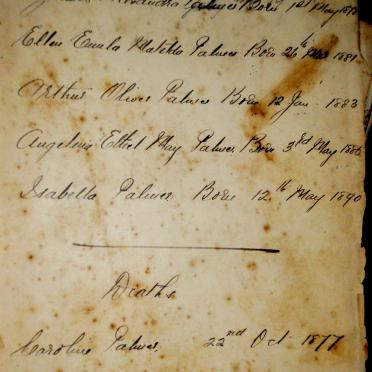 Palmer Born 1st May 18
Ellen Emila Matilda Palmer Born 26th 1881
Arthur Oliver Palmer Born 12 Jan 1883
Angelina Ethel May Palmer Born 3rd May 188
Isabella Palmer Born 12th May 1890
Deaths
Caroline Palmer. 22nd Oct 1877